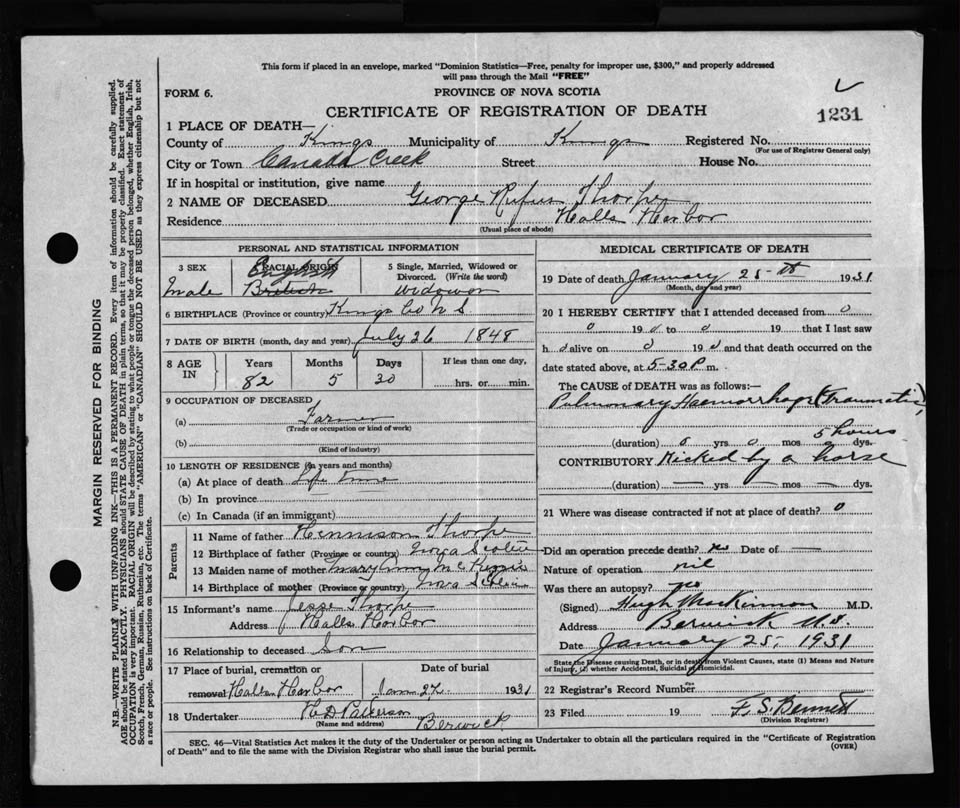 This form if placed in an envelope, marked "Dominion Statistics—Free, penalty for improper use, $300," and properly addressed
will pass through the Mail "FREE"
FORM 6.
PROVINCE OF NOVA SCOTIA
1231
CERTIFICATE OF REGISTRATION OF DEATH
1 PLACE OF DEATH—
County of Kings Municipality of Kings Registered No.
(For use of Registrar General only)
City or Town Canada Creek Street House No.
If in hospital or institution, give name
2 NAME OF DECEASED George Rufus Thorpe
Residence Halls Harbor
(Usual place of abode)
PERSONAL AND STATISTICAL INFORMATION
3 SEX
male
RACIAL ORIGIN
English
British
5 Single, Married, Widowed or
Divorced. (Write the word)
Widower
6 BIRTHPLACE (Province or country) Kings Co N S
7 DATE OF BIRTH (month, day and year) July 26 1848
8 AGE
IN
Years Months Days If less than one day,
82 5 30 hrs. or min.
9 OCCUPATION OF DECEASED
(a) Farmer
(Trade or occupation or kind of work)
(b)
(Kind of industry)
10 LENGTH OF RESIDENCE (in years and months)
(a) At place of death Life time
(b) In province
(c) In Canada (if an immigrant)
Parents
11 Name of father Hennison Thorpe
12 Birthplace of father (Province or country) Nova Scotia
13 Maiden name of mother Mary
14 Birthplace of mother (Province or country) Nova Scotia
15 Informant's name Jesse Thorpe
Address Halls Harbor
16 Relationship to deceased Son
17 Place of burial, cremation or
removal Halls Harbor
Date of burial
Jan 27 1931
18 Undertaker H D Patterson
(Name and address) Berwick
MEDICAL CERTIFICATE OF DEATH
19 Date of death January 25th 1931
(Month, day and year)
20 I HEREBY CERTIFY that I attended deceased from 0
0 19 0 to 0 19 that I last saw
h 0 alive on 0 19 0 and that death occurred on the
date stated above, at 5-30 P m.
The CAUSE OF DEATH was as follows:—
Pulmonary Haemorrhage (Traumatic)
5 hours
(duration) 0 yrs 0 mos dys.
CONTRIBUTORY Kicked by a horse
(duration) — yrs — mos — dys.
21 Where was disease contracted if not at place of death? 0
Did an operation precede death? no Date of —
Nature of operation nil
Was there an autopsy?
(Signed) Hugh MacKinnon M.D.
Address Berwick N.S.
Date January 25, 1931
State the Disease causing Death, or in death from Violent Causes, state (1) Means and Nature
of Injury, (2) whether Accidental, Suicidal or Homicidal.
22 Registrar's Record Number
23 Filed 19 F. S. Bennett
(Division Registrar)
SEC. 46—Vital Statistics Act makes it the duty of the Undertaker or person acting as Undertaker to obtain all the particulars required in the "Certificate of Registration
of Death" and to file the same with the Division Registrar who shall issue the burial permit.
(OVER)
MARGIN RESERVED FOR BINDING
N.B.—WRITE PLAINLY WITH UNFADING INK—THIS IS A PERMANENT RECORD. Every item of information should be carefully supplied.
AGE should be stated EXACTLY. PHYSICIANS should STATE CAUSE OF DEATH in plain terms, so that it may be properly classified. Exact statement of
OCCUPATION is very important. RACIAL ORIGIN will be described by stating to what people or tongue the deceased person belonged, whether English, Irish,
Scotch, French, German, Russian, Ruthenian, etc. The terms "AMERICAN" or "CANADIAN" SHOULD NOT BE USED as they express citizenship but not
a race or people. See instructions on back of Certificate.